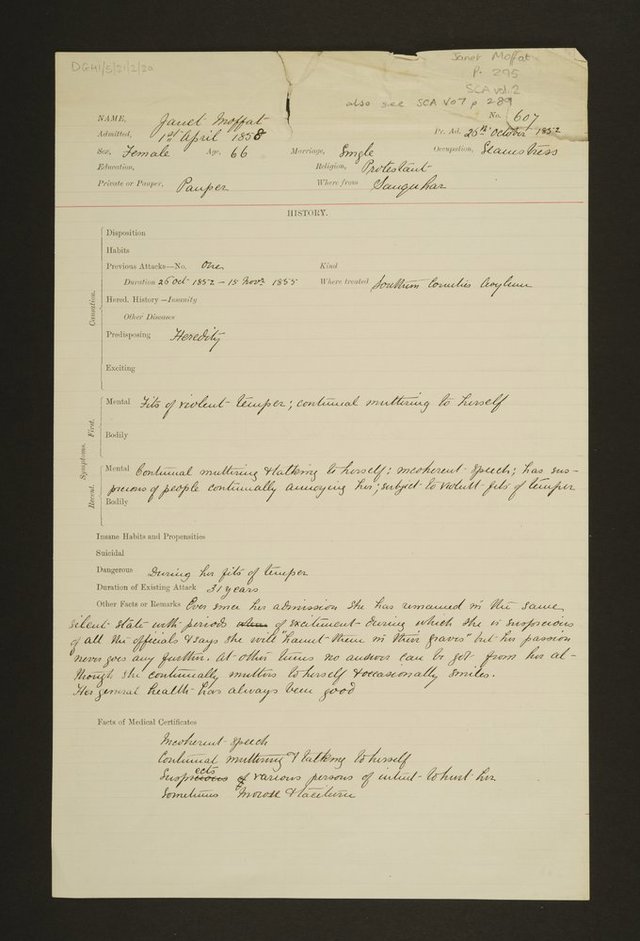 DGH1/5/21/2/20
Janet Moffat
P. 295
SCA vol. 2
also see SCA vo7 p 289
No. 607
NAME, Janet Moffat
Admitted, 1st April 1858 Pr. Ad. 25th October 1852
Sex, Female Age, 66 Marriage, Single Occupation, Seamstress
Education, Religion, Protestant
Private or Pauper, Pauper Where from Sanquhar
HISTORY.
Disposition
Habits
Previous Attacks—No. One Kind
Duration 25 Oct 1852 - 15 Novr 1855 Where treated Southern Counties Asylum
Hered. History—Insanity
Other Diseases
Causation.
Predisposing Heredity
Exciting
Symptoms.
First.
Mental Fits of violent temper; continual muttering to herself
Bodily
Recent.
Mental Continual muttering & talking to herself; incoherent speech; has sus-
picions of people continually annoying her; subject to violent fits of temper
Bodily
Insane Habits and Propensities
Suicidal
Dangerous During her fits of temper
Duration of Existing Attack 31 years
Other Facts or Remarks Ever since her admission she has remained in the same
silent state with periods of excitement during which she is suspicious
of all the officials & says she will "haunt them in their graves" but her passion
never goes any further. At other times no answer can be got from her al-
though she continually mutters to herself & occasionally smiles.
Her general health has always been good
Facts of Medical Certificates
Incoherent speech
Continual muttering & talking to herself
Suspects various persons of intent to hurt her
Sometimes morose & taciturn